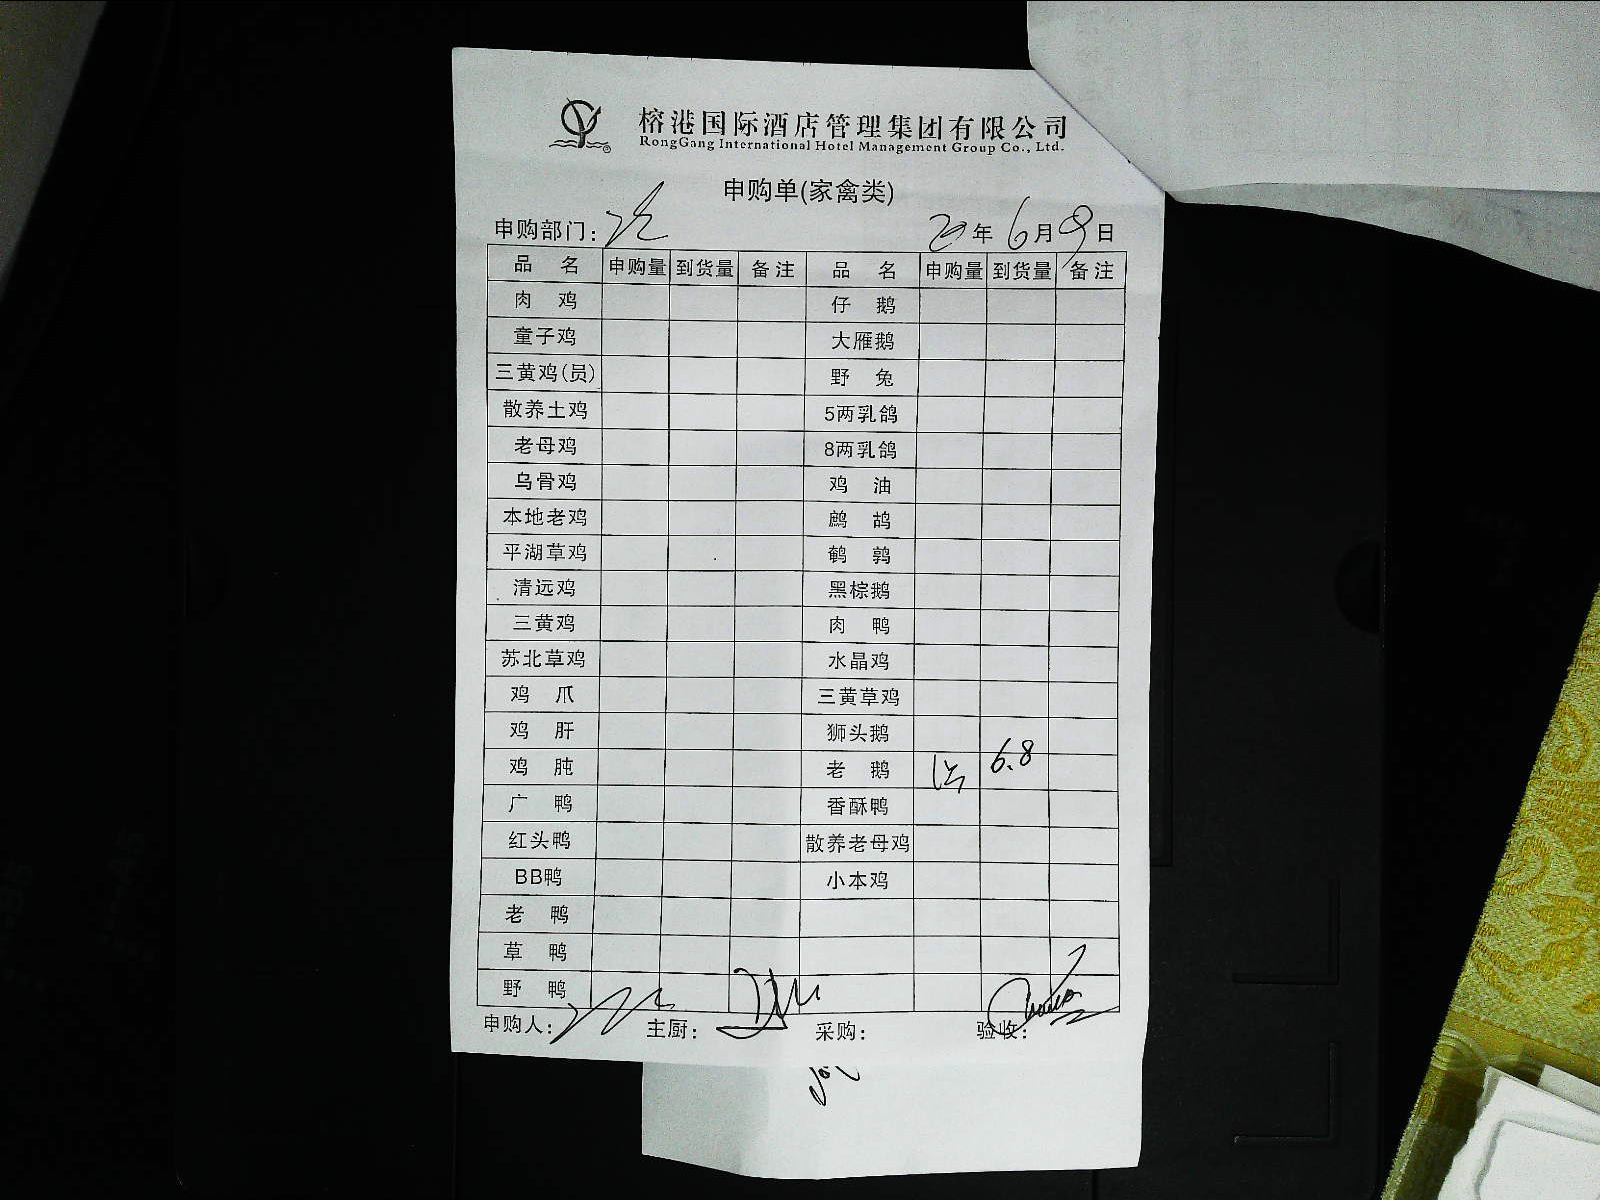 榕港国际酒店管理集团有限公司
RongGang International Hotel Management Group Co., Ltd.
申购单(家禽类)
申购部门： 20年 6月 9日
品 名 申购量 到货量 备注 品 名 申购量 到货量 备注
肉 鸡 仔 鹅
童子鸡 大雁鹅
三黄鸡(员) 野 兔
散养土鸡 5两乳鸽
老母鸡 8两乳鸽
乌骨鸡 鸡 油
本地老鸡 鹧 鸪
平湖草鸡 鹌 鹑
清远鸡 黑棕鹅
三黄鸡 肉 鸭
苏北草鸡 水晶鸡
鸡 爪 三黄草鸡
鸡 肝 狮头鹅
鸡 肫 老 鹅 6.8
广 鸭 香酥鸭
红头鸭 散养老母鸡
BB鸭 小本鸡
老 鸭
草 鸭
野 鸭
申购人： 主厨： 采购： 验收：